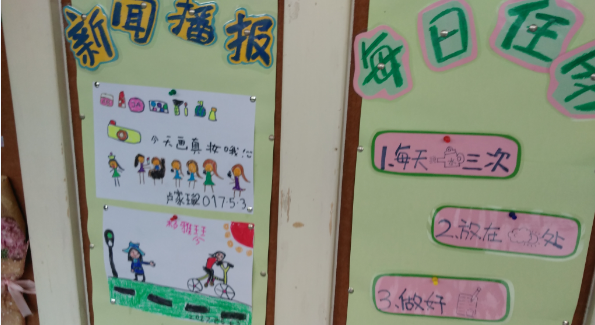 新闻播报
今天画真妆哦
017.5.3
每日任务
1.每天
三次
2.放在
处
3.做好